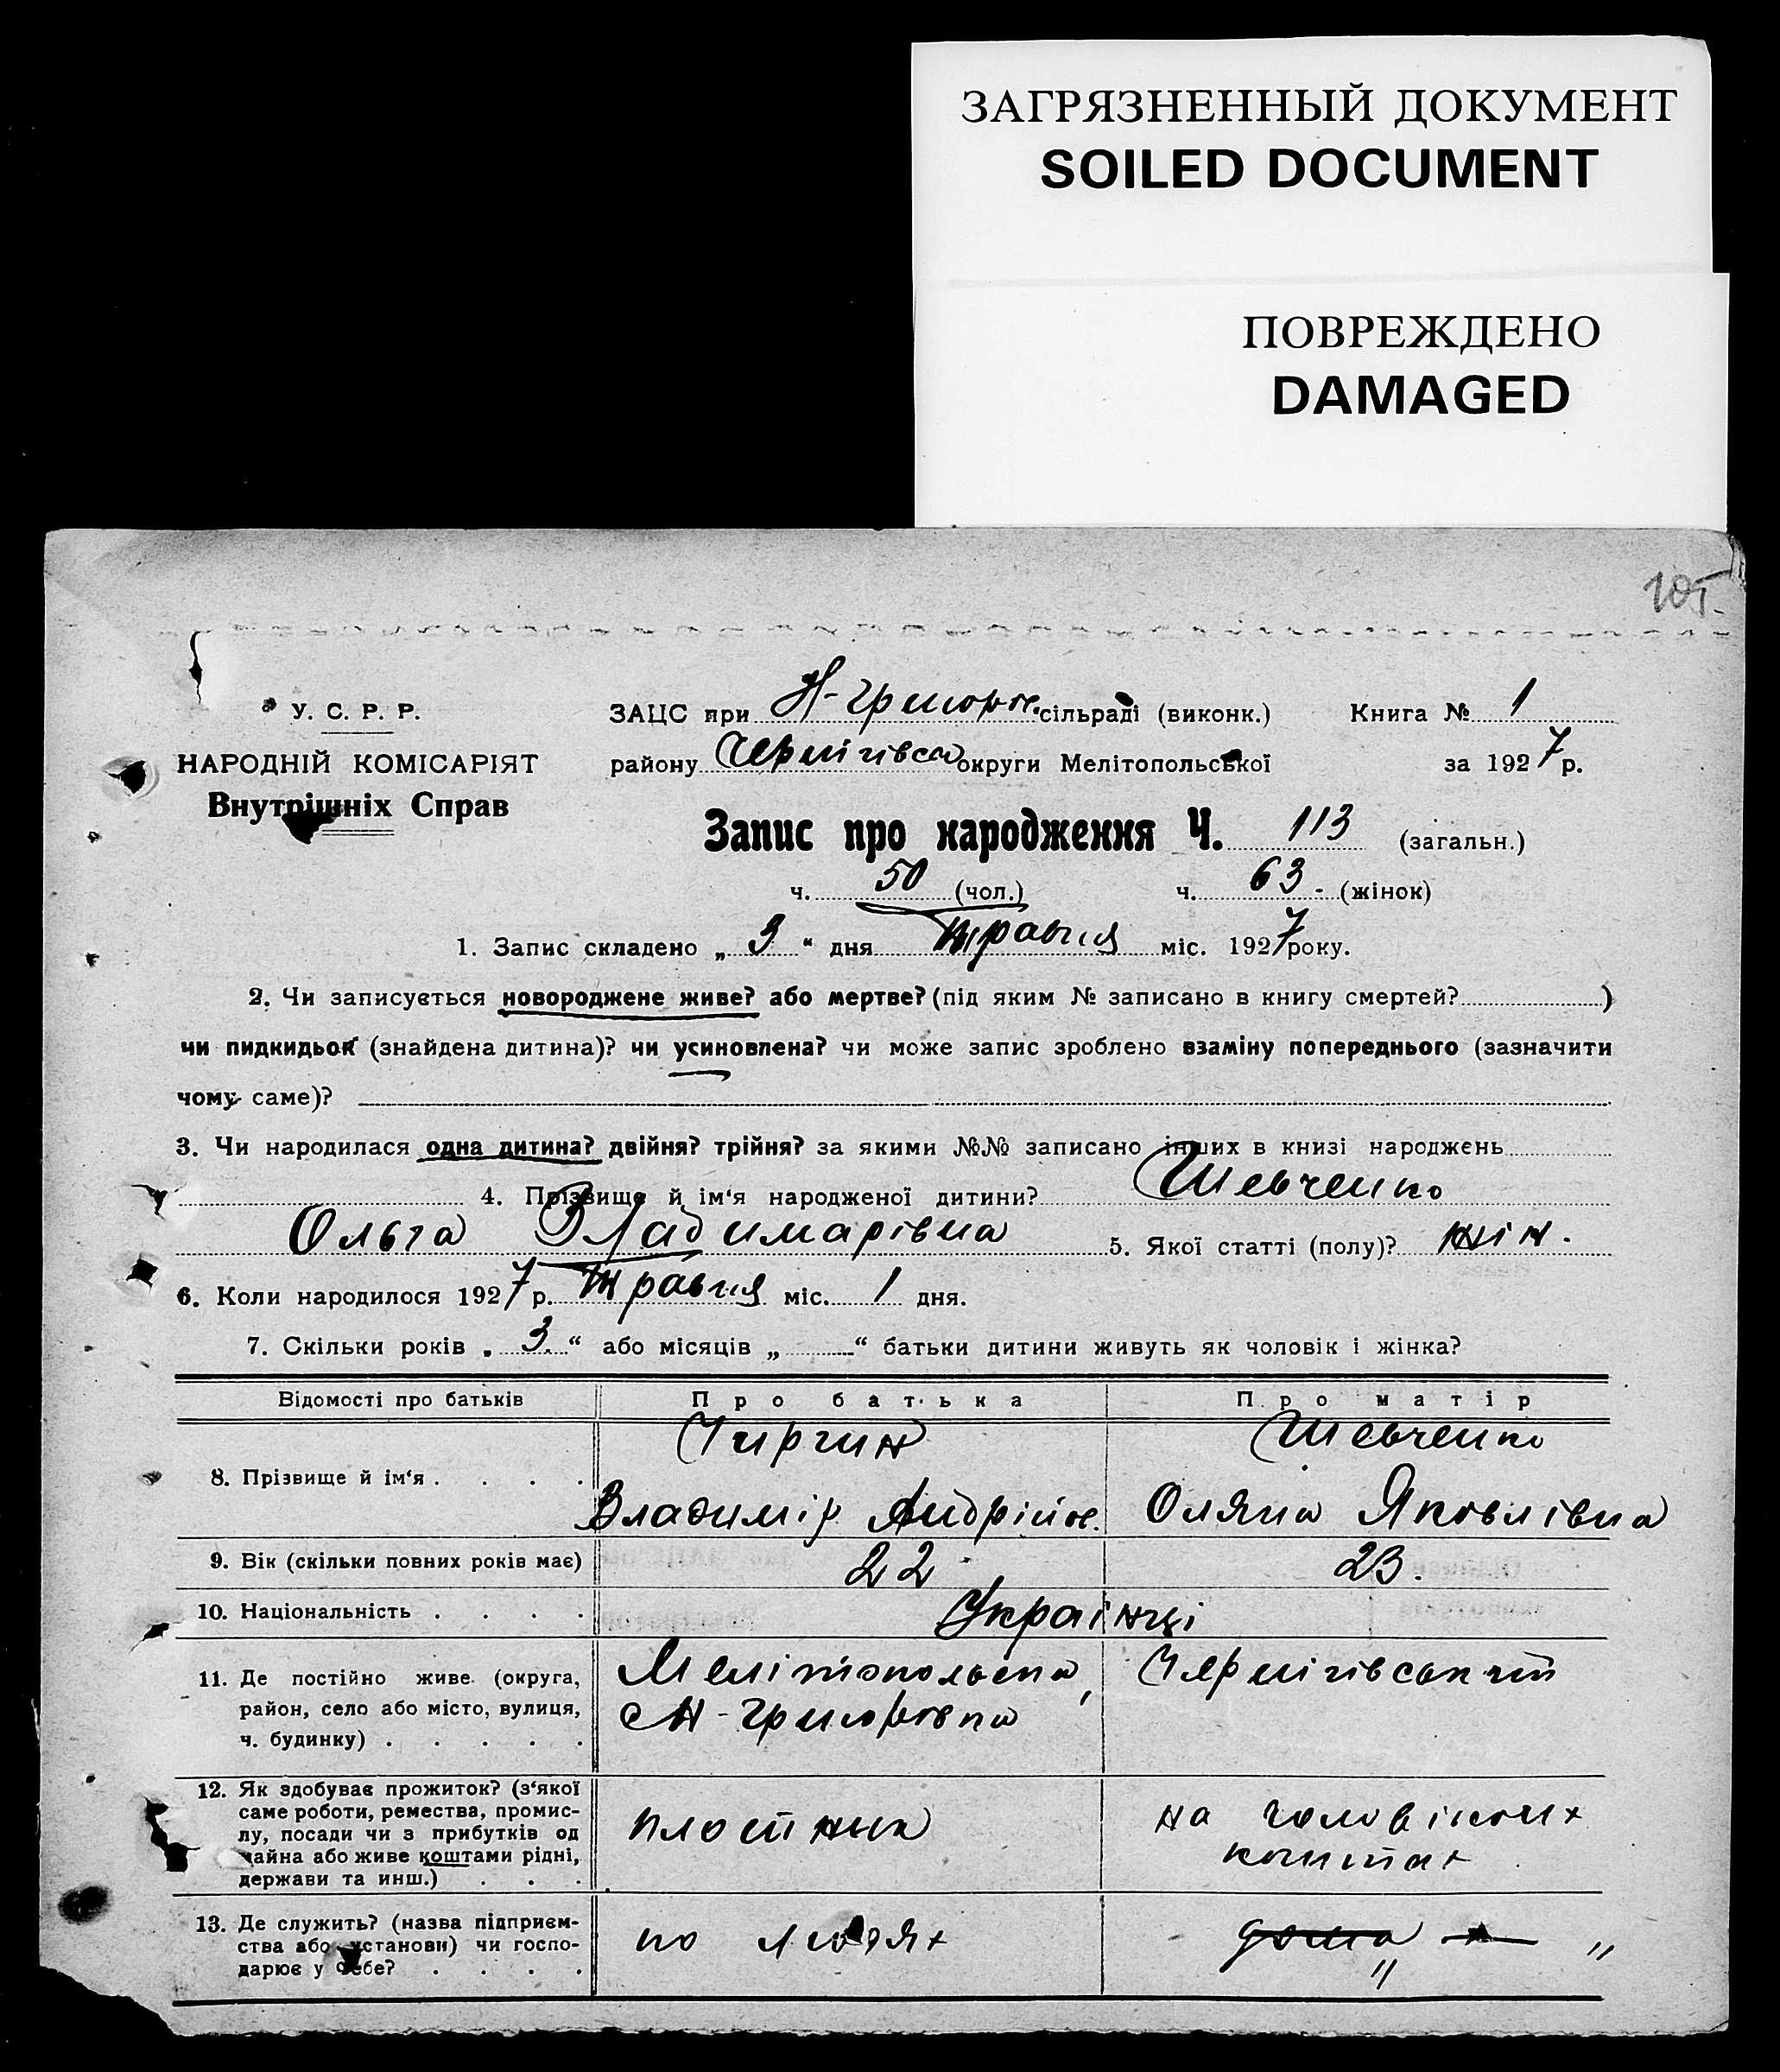 ЗАГРЯЗНЕННЫЙ ДОКУМЕНТ
SOILED DOCUMENT
ПОВРЕЖДЕНО
DAMAGED
105
У. С. Р. Р.
НАРОДНІЙ КОМІСАРІЯТ
Внутрішніх Справ
ЗАЦС при Н-Григоров. сільраді (виконк.) Книга № 1
району Чернігівсько округи Мелітопольської за 1927 р.
Запис про народження Ч. 113 (загальн.)
ч. 50 (чол.) ч. 63 - (жінок)
1. Запис складено „ 3 “ дня травня міс. 1927 року.
2. Чи записується новороджене живе? або мертве? (під яким № записано в книгу смертей? )
чи пидкидьок (знайдена дитина)? чи усиновлена? чи може запис зроблено взаміну попереднього (зазначити
чому саме)?
3. Чи народилася одна дитина? двійня? трійня? за якими №№ записано інших в книзі народжень
4. Прізвище й ім‘я народженої дитини? Шевченко
Ольга Владимарівна 5. Якої статті (полу)? жін.
6. Коли народилося 1927 р. травня міс. 1 дня.
7. Скільки років „ 3. “ або місяців „ “ батьки дитини живуть як чоловік і жінка?
Відомості про батьків Про батька Про матір
8. Прізвище й ім‘я . . . . Чиргин Шевченко
Владимір Андрійов. Оляна Яковлівна
9. Вік (скільки повних років має) 22 23.
10. Національність . . . . Українці
11. Де постійно живе (округа, район, село або місто, вулиця, ч. будинку) . . . . . Мелітопольська, Чернігівський
Н-Григоровка
12. Як здобуває прожиток? (з‘якої саме роботи, ремества, промислу, посади чи з прибутків од майна або живе коштами рідні, держави та инш.) . . . плотнык на чоловікових
коштах
13. Де служить? (назва підприємства або установи) чи господарює у себе? . . . . по людях дома " "